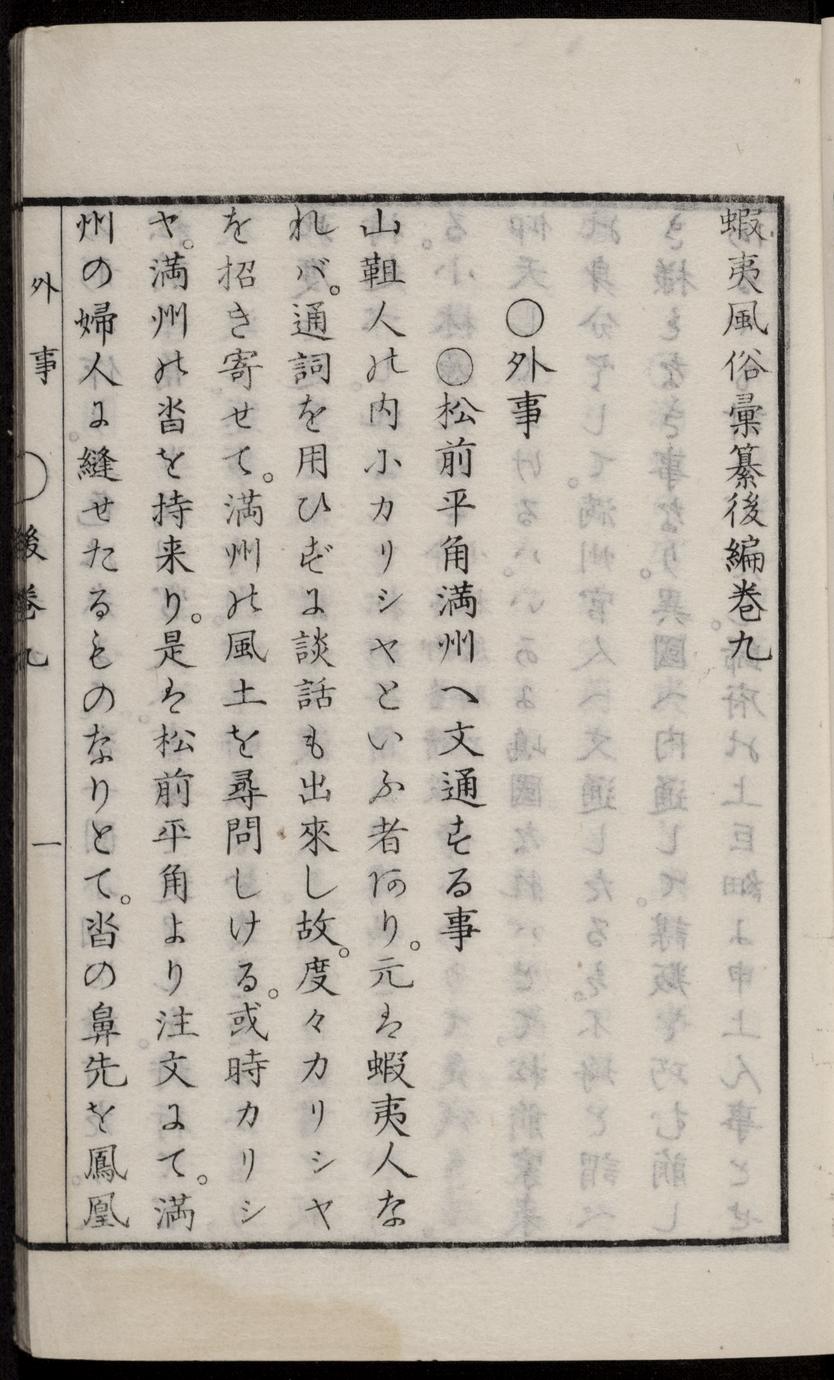 蝦夷風俗彙纂後編巻九
○外事
○松前平角満州へ文通する事
山靼人の内にカリシヤといふ者あり。元は蝦夷人な
れバ。通詞を用ひずに談話も出來し故。度々カリシヤ
を招き寄せて。満州の風土を尋問しける。或時カリシ
ヤ。満州の沓を持来り。是は松前平角より注文にて。満
州の婦人に縫せたるものなりとて。沓の鼻先を鳳凰
外事 ○後巻九 一